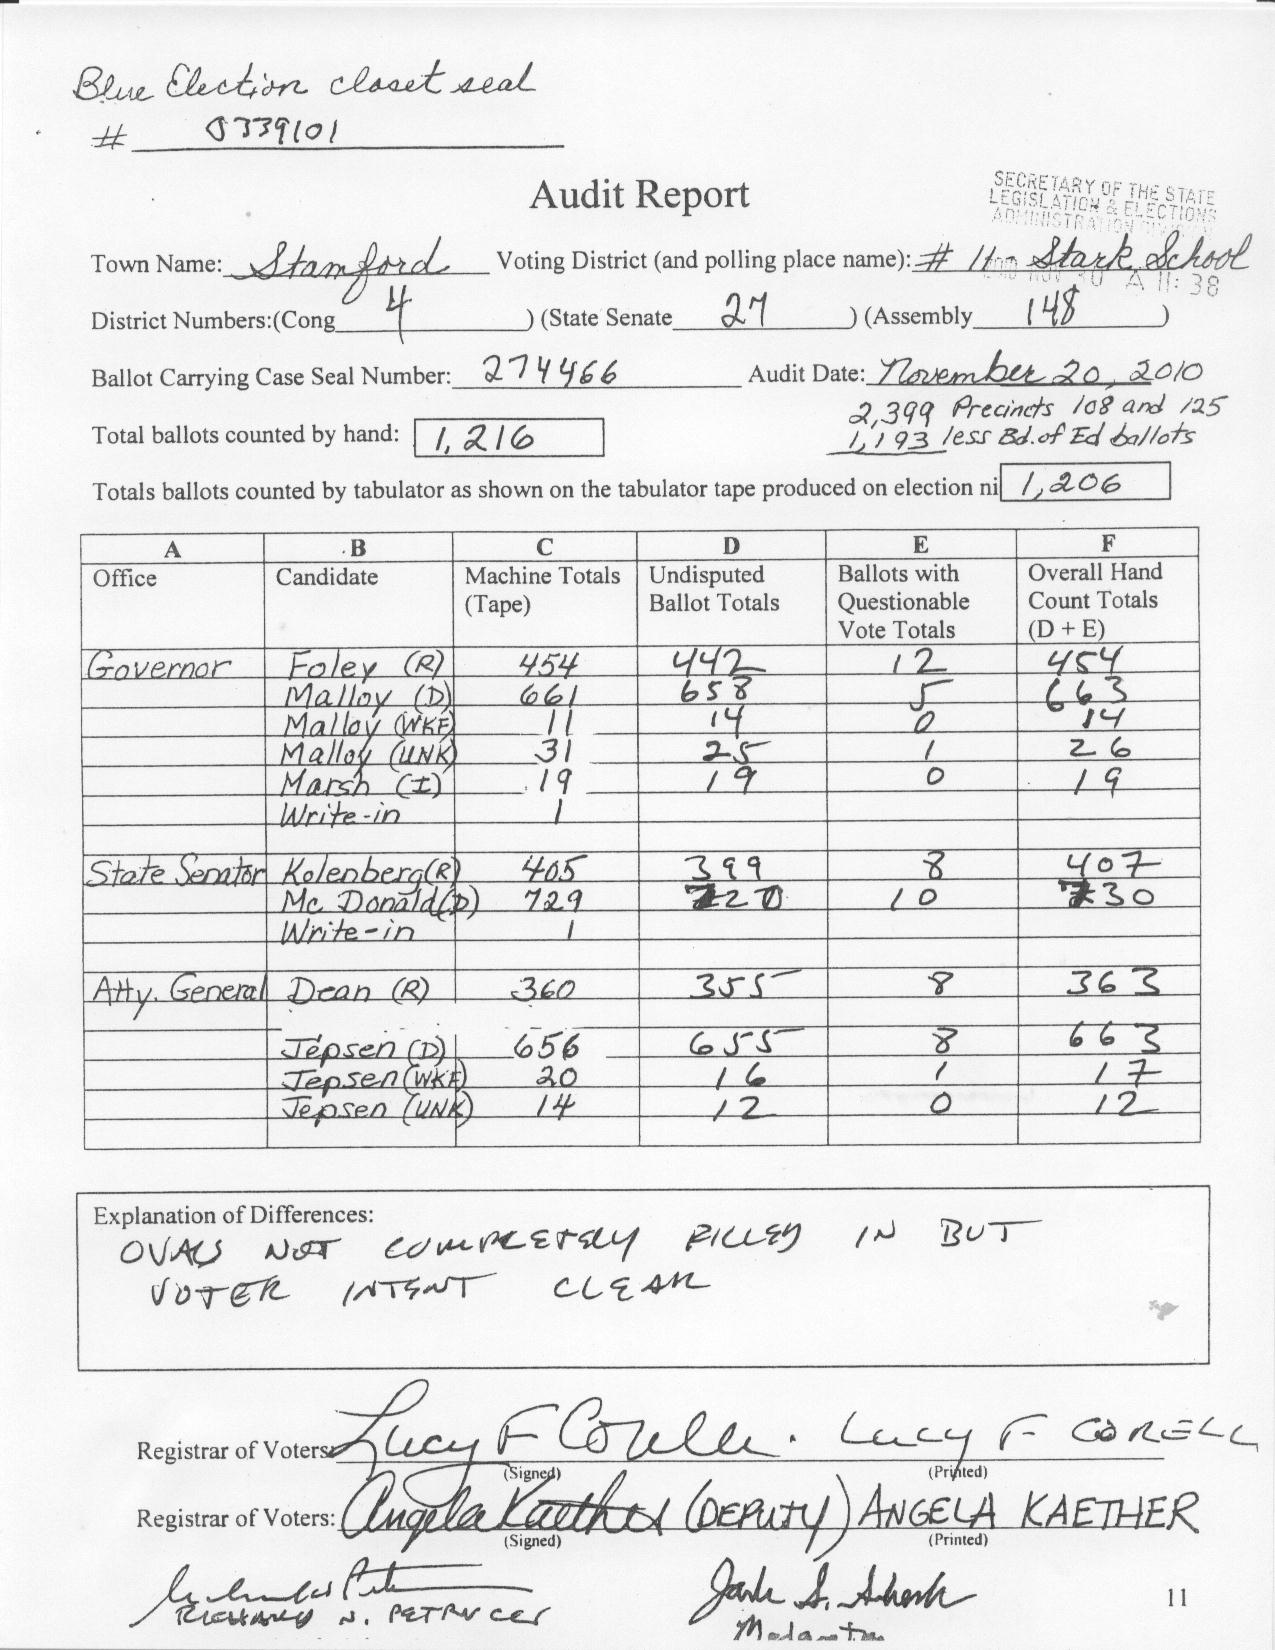 Blue Election closet seal
# 0339101
Audit Report
SECRETARY OF THE STATE
LEGISLATION & ELECTIONS
ADMINISTRATION
Town Name: Stamford Voting District (and polling place name): # 11 Stark School
30 A 11: 38
District Numbers:(Cong 4 ) (State Senate 27 ) (Assembly 148 )
Ballot Carrying Case Seal Number: 274466 Audit Date: November 20, 2010
2,399 Precincts 108 and 125
Total ballots counted by hand: 1,216 1,193 less Bd. of Ed ballots
Totals ballots counted by tabulator as shown on the tabulator tape produced on election ni 1,206
A B C D E F
Office Candidate Machine Totals Undisputed Ballots with Overall Hand
(Tape) Ballot Totals Questionable Count Totals
Vote Totals (D + E)
Governor Foley (R) 454 442 12 454
Malloy (D) 661 658 5 663
Malloy (WKF) 11 14 0 14
Malloy (UNK) 31 25 1 26
Marsh (I) 19 19 0 19
Write-in 1
State Senator Kolenberg (R) 405 399 8 407
Mc Donald (D) 729 720 10 730
Write-in 1
Atty. General Dean (R) 360 355 8 363
Jepsen (D) 656 655 8 663
Jepsen (WKF) 20 16 1 17
Jepsen (UNK) 14 12 0 12
Explanation of Differences:
OVALS NOT COMPLETELY FILLED IN BUT
VOTER INTENT CLEAR
Registrar of Voters: Lucy F Corelli. LUCY F CORELLI
(Signed) (Printed)
Registrar of Voters: Angela Kaether (DEPUTY) ANGELA KAETHER
(Signed) (Printed)
RICHARD N. PETRUCCI
11